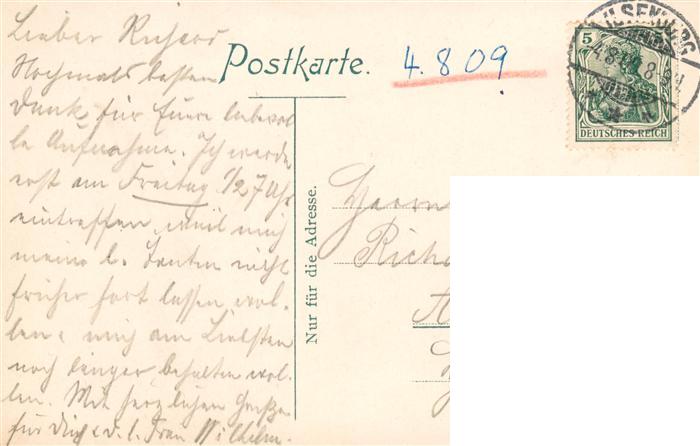 Lieber Richard
Nochmals besten
Dank für Euere liebevol-
le Aufnahme. Ich werde
erst am Freitag 1/2 7 Uhr
eintreffen weil mich
meine l. Tanten nicht
früher fort lassen wol-
len & mich am Liebsten
noch länger behalten wol-
len. Mit herzlichen Grüßen
für Dich & d. l. Frau Wilhelm.
Postkarte.
4.8.09
ILSENBURG
5
DEUTSCHES REICH
Nur für die Adresse.
Herrn
Rich